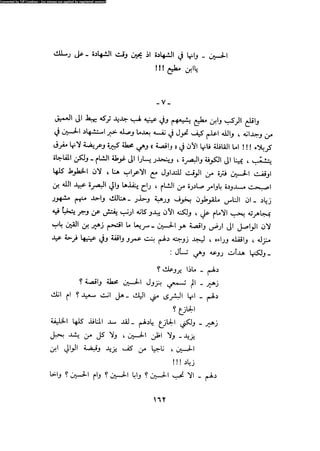 Converted by Tiff Combine - (no stamps are applied by registered version)
الحسين - وإنها في الشهادة إذ يجيئ وقت الشهادة - على رسلك
يا ابن مطيع !!!
- ٧ -
وأقلع الركب وابن مطيع يشيعهم في عينيه لهف جديد تركز يهبط إلى العميق
من وجدانه ، والله أعلم كيف تحول في نفسه بعدما وصله خبر استشهاد الحسين في
كربلاء !!! أما القافلة فإنها الآن في « واقصة » وهي محطة كبيرة ومعروفة لأنها مفرق
يتشعب ، إما إلى الكوفة والبصرة ، وينحدر يساراً إلى غوطة الشام - ولكن المفاجأة
أوقفت الحسين فترة من الوقت للتداول مع الأعراب هنا ، لأن الخطوط كلها
أصبحت مسدودة بأوامر صادرة من الشام ، راح ينفذها والي البصرة عبيد الله بن
زياد - إن الناس مطوقون بخوف ورهبة وحذر - هنالك واحد منهم جمهور
بمجاهرته بحب الإمام علي ، ولكن الآن يبدو كأنه أخرس يفتش عن حرز يختبئ فيه
لأن الوصول إلى أرض واقصة هو الحسين - بعدما اقتحم زهير بن القين باب
منزله ، وأقلقه وراءه ، ليجد زوجته دلهم بنت عمرو واقفة في عينيها فرحة عيد
- ولكنها خلعت رعود وهي تسأل :
دلهم - ماذا يروعك ؟
زهير - ألم تسمعي بنزول الحسين محطة واقصة ؟
دلهم - أما البشرى فهي إليك - هل أنت سعيد ؟ أم أنك
الجازع ؟
زهير - ولكني الجازع يا دلهم - لقد سد المنافذ كلها الخليفة
يزيد - ولا إذن الحسين ، ولا كل من يشد بحبل
الحسين ، بناج من كف يزيد وقبضة الوالي ابن
زياد !!!
دلهم - ألا تحب الحسين ؟ وأبا الحسين ؟ وأم الحسين ؟ وأخا
١٦٢